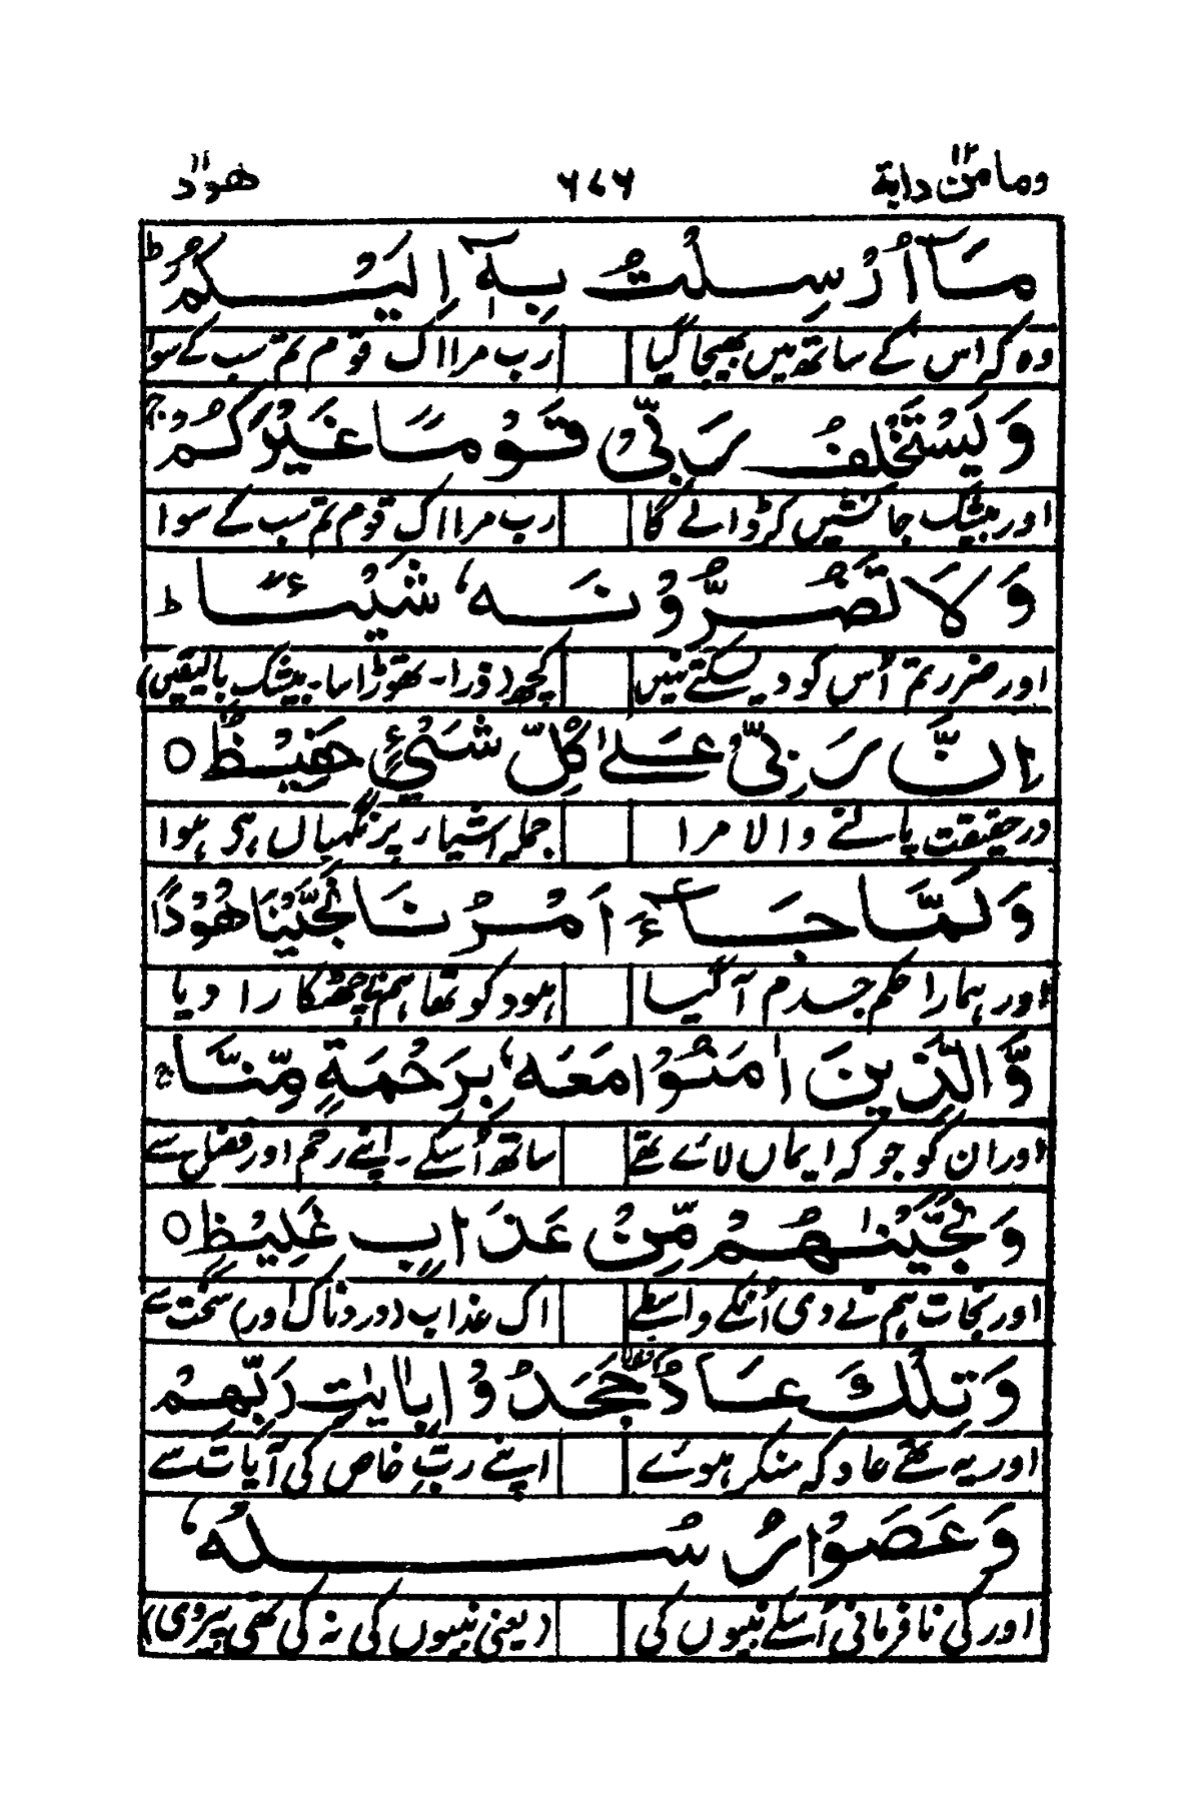 وما من دابة ١٢ ٦٧٦ هود ١١
مَآ اُرْسِلْتُ بِهٖٓ اِلَيْكُمْ ؕ
وہ کہ اس کے ساتھ میں بھیجا گیا رب مرا اک قوم تم سب کے سوا
وَيَسْتَخْلِفُ رَبِّيْ قَوْمًا غَيْرَكُمْ ۚ
اور بیشک جانشیں کر ڈالے گا رب مرا اک قوم تم سب کے سوا
وَلَا تَضُرُّوْنَهٗ شَيْـًٔا ؕ
اور ضرر تم اُس کو دے سکتے نہیں کچھ (ذرا۔ تھوڑا سا۔ بیشک بالیقیں)
اِنَّ رَبِّيْ عَلٰى كُلِّ شَيْءٍ حَفِيْظٌ ○
درحقیقت پالنے والا مرا جملہ اشیاء پر نگہباں ہی ہوا
وَلَمَّا جَآءَ اَمْرُنَا نَجَّيْنَا هُوْدًا
اور ہمارا حکم جسدم آ گیا ہود کو تھا ہم نے چھٹکارا دیا
وَّالَّذِيْنَ اٰمَنُوْا مَعَهٗ بِرَحْمَةٍ مِّنَّا ۚ
اور ان کو جو کہ ایماں لائے تھے ساتھ اُسکے۔ اپنے رحم اور فضل سے
وَنَجَّيْنٰهُمْ مِّنْ عَذَابٍ غَلِيْظٍ ○
اور نجات ہم نے دی اُنکے واسطے اک عذاب (دردناک اور) سخت سے
وَتِلْكَ عَادٌ جَحَدُوْا بِاٰيٰتِ رَبِّهِمْ
اور یہ تھے عاد کہ منکر ہوئے اپنے ربِّ خاص کی آیات سے
وَعَصَوْا رُسُلَهٗ
اور کی نافرمانی اُسکے نبیوں کی (یعنی نبیوں کی نہ کی تھی پیروی)